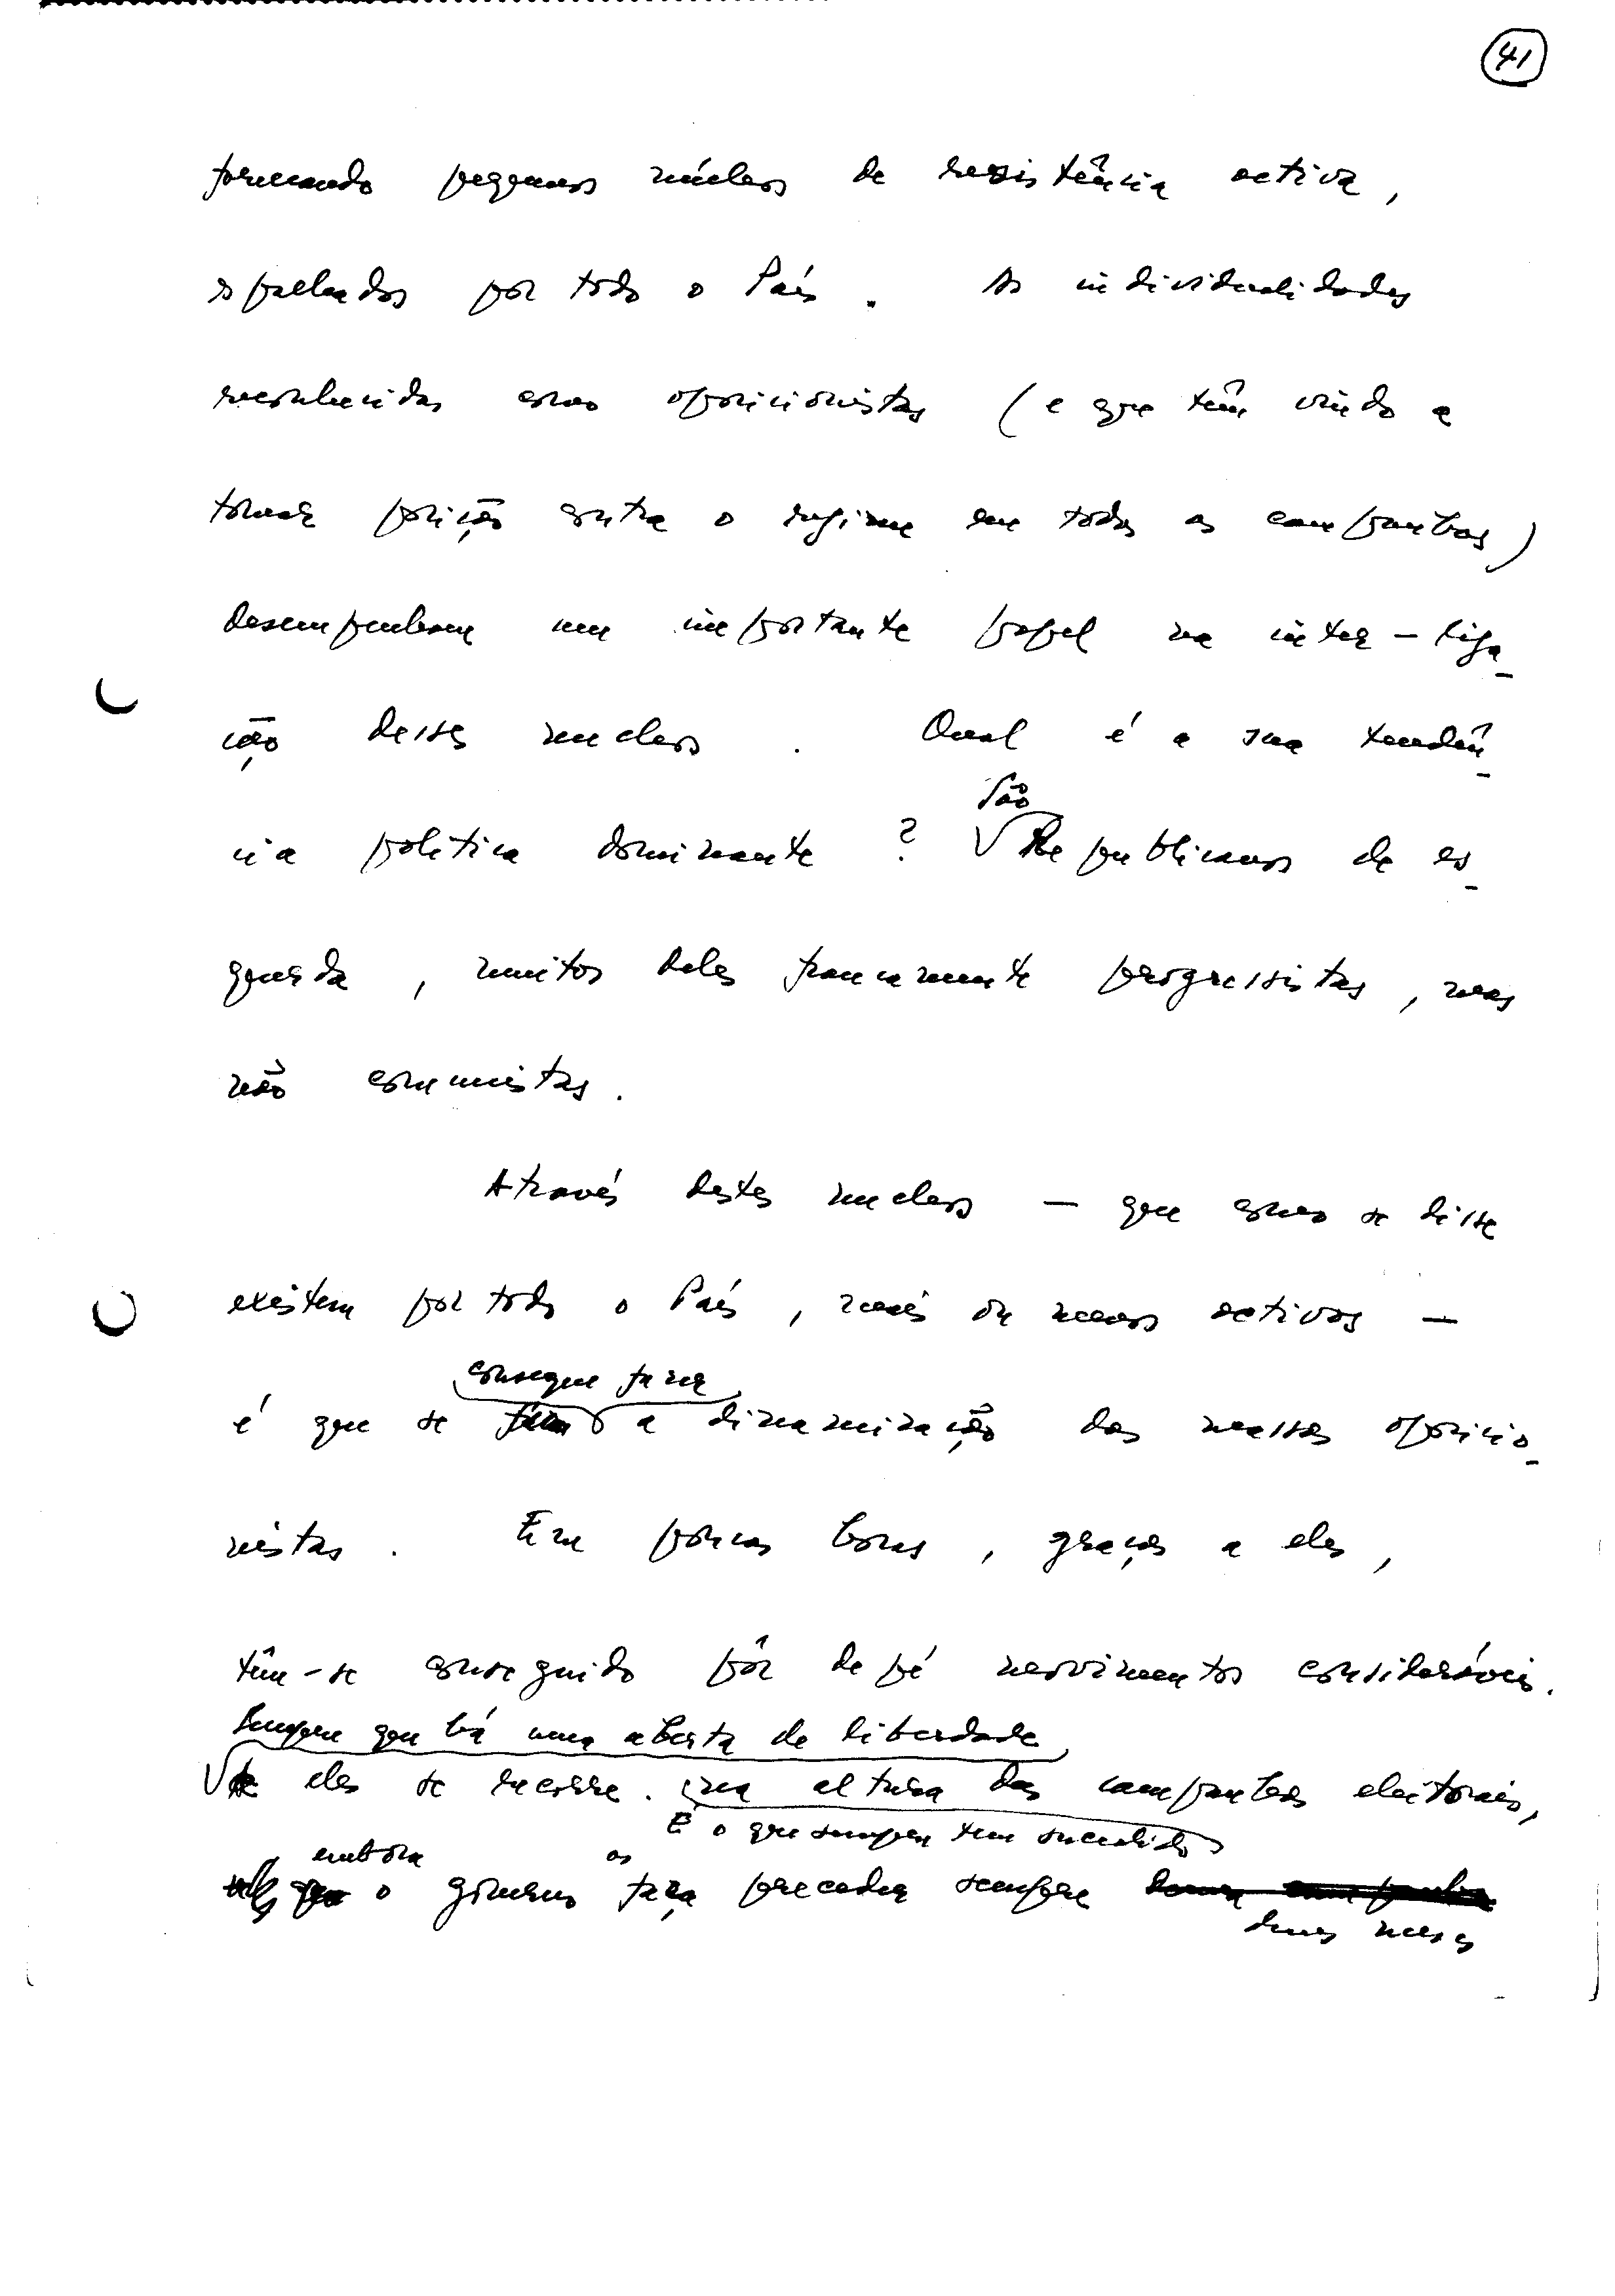 41
formando pequenos núcleos de resistência activa,
espalhados por todo o País. As individualidades
reconhecidas como oposicionistas (e que têm vindo a
tomar posição contra o regime em todas as campanhas)
desempenham um importante papel na inter-liga-
ção desses nucleos. Qual é a sua tendên-
São
cia politica dominante? Republicanos de es-
querda, muitos deles francamente progressistas, mas
não comunistas.
Através destes nucleos — que como se disse
existem por todo o País, mais ou menos activos —
consegue fazer
é que se a dinamização das massas oposicio-
nistas. Em poucas horas, graças a eles,
têm-se conseguido pôr de pé movimentos consideráveis.
Sempre que há uma aberta de liberdade
a eles se recorre. na altura das campanhas eleitorais,
É o que sempre tem sucedido
embora as
o governo faça preceder sempre
duas